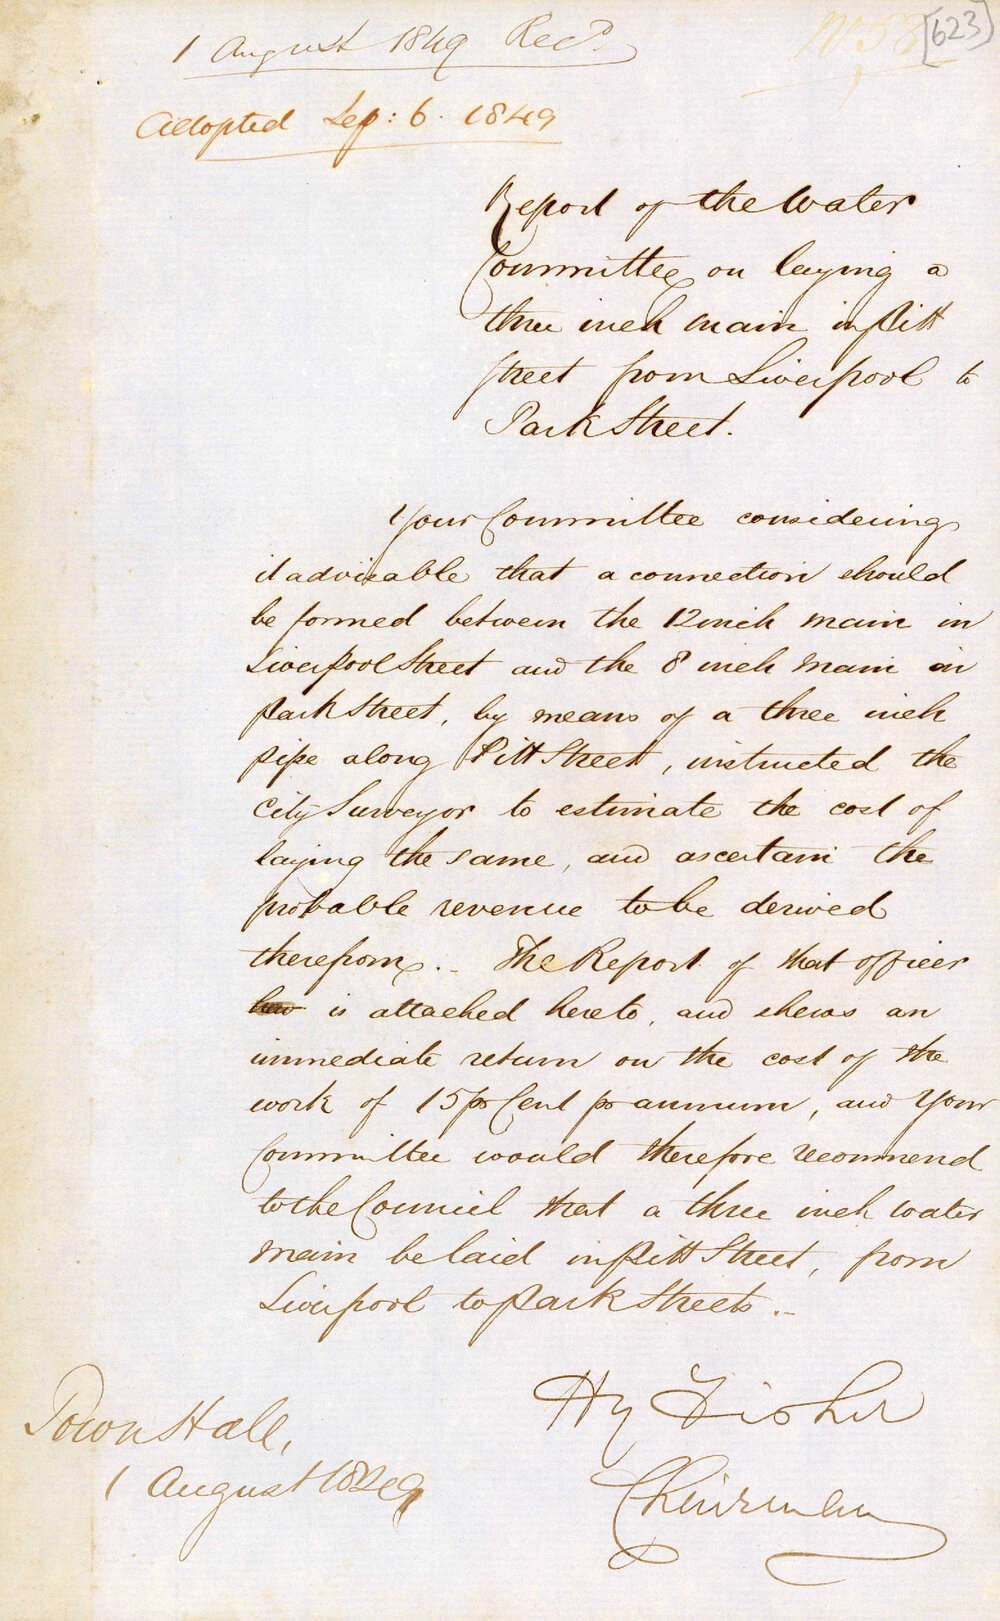 1 August 1849 Recd.
No 58
[623]
Adopted Sep: 6. 1849
Report of the Water
Committee on laying a
three inch main in Pitt
Street from Liverpool to
Park Street.
Your Committee considering
it advisable that a connection should
be formed between the 12 inch main in
Liverpool Street and the 8 inch main in
Park Street, by means of a three inch
pipe along Pitt Street, instructed the
City Surveyor to estimate the cost of
laying the same, and ascertain the
probable revenue to be derived
therefrom.. The Report of that officer
is attached hereto, and shews an
immediate return on the cost of the
work of 15 pr Cent pr annum, and Your
Committee would therefore recommend
to the Council that a three inch water
main be laid in Pitt Street, from
Liverpool to Park Streets..
Hy Fisher
Chairman
Town Hall,
1 August 1849